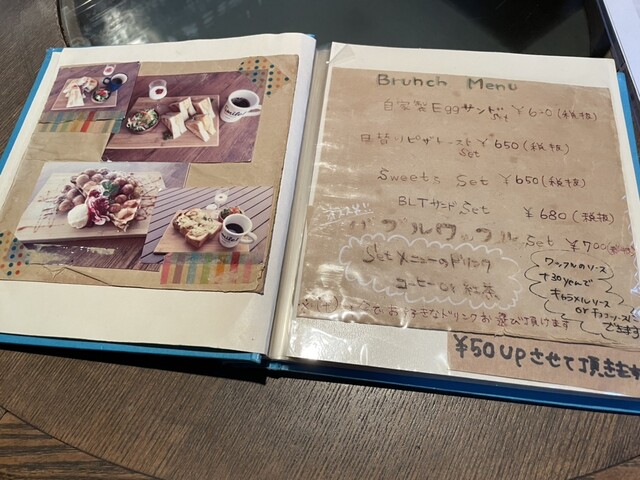 Brunch Menu
自家製Eggサンド Set ¥600(税抜)
日替りピザトースト Set ¥650(税抜)
Sweets Set ¥650(税抜)
BLTサンド Set ¥680(税抜)
オススメ!!
バブルワッフル Set ¥700
Setメニューのドリンク
コーヒー or 紅茶
ワッフルのソース
+30yenで
キャラメルソース
orチョコソースに
できます
お好きなドリンクお選び頂けます
¥50upさせて頂きます